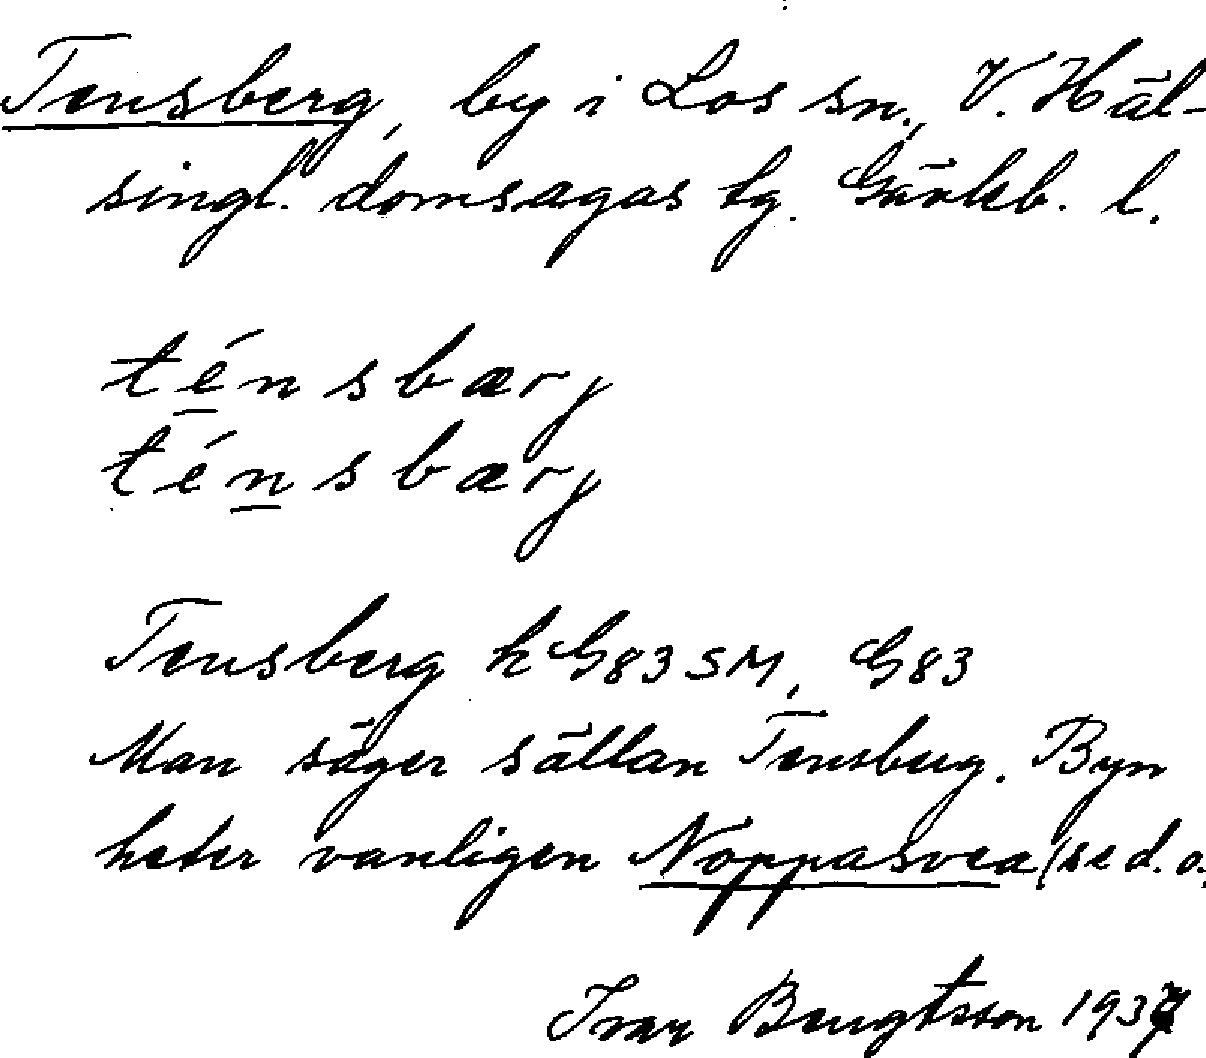 Tensberg, by i Los sn., V. Häl-
singl. domsagas tg. Gävleb. l.
ténsbærj
ténsbærj
Tensberg k G83SM, G83
Man säger sällan Tensberg. Byn
heter vanligen Noppasvea (se d.o.
Ivar Bengtsson 1937